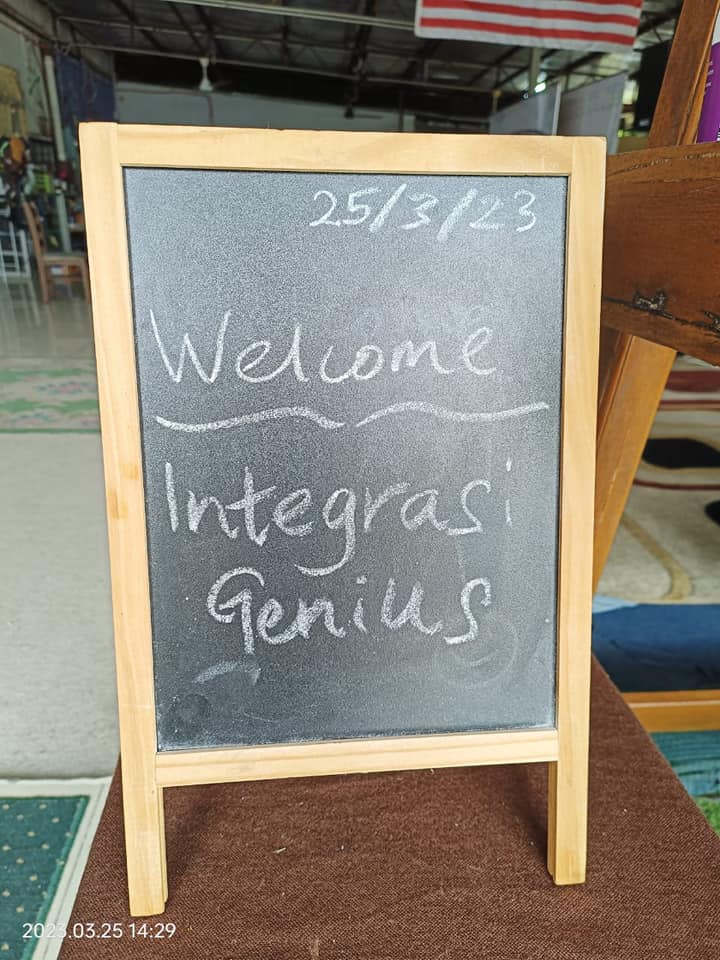 25/3/23
Welcome
Integrasi
Genius
2023.03.25 14:29